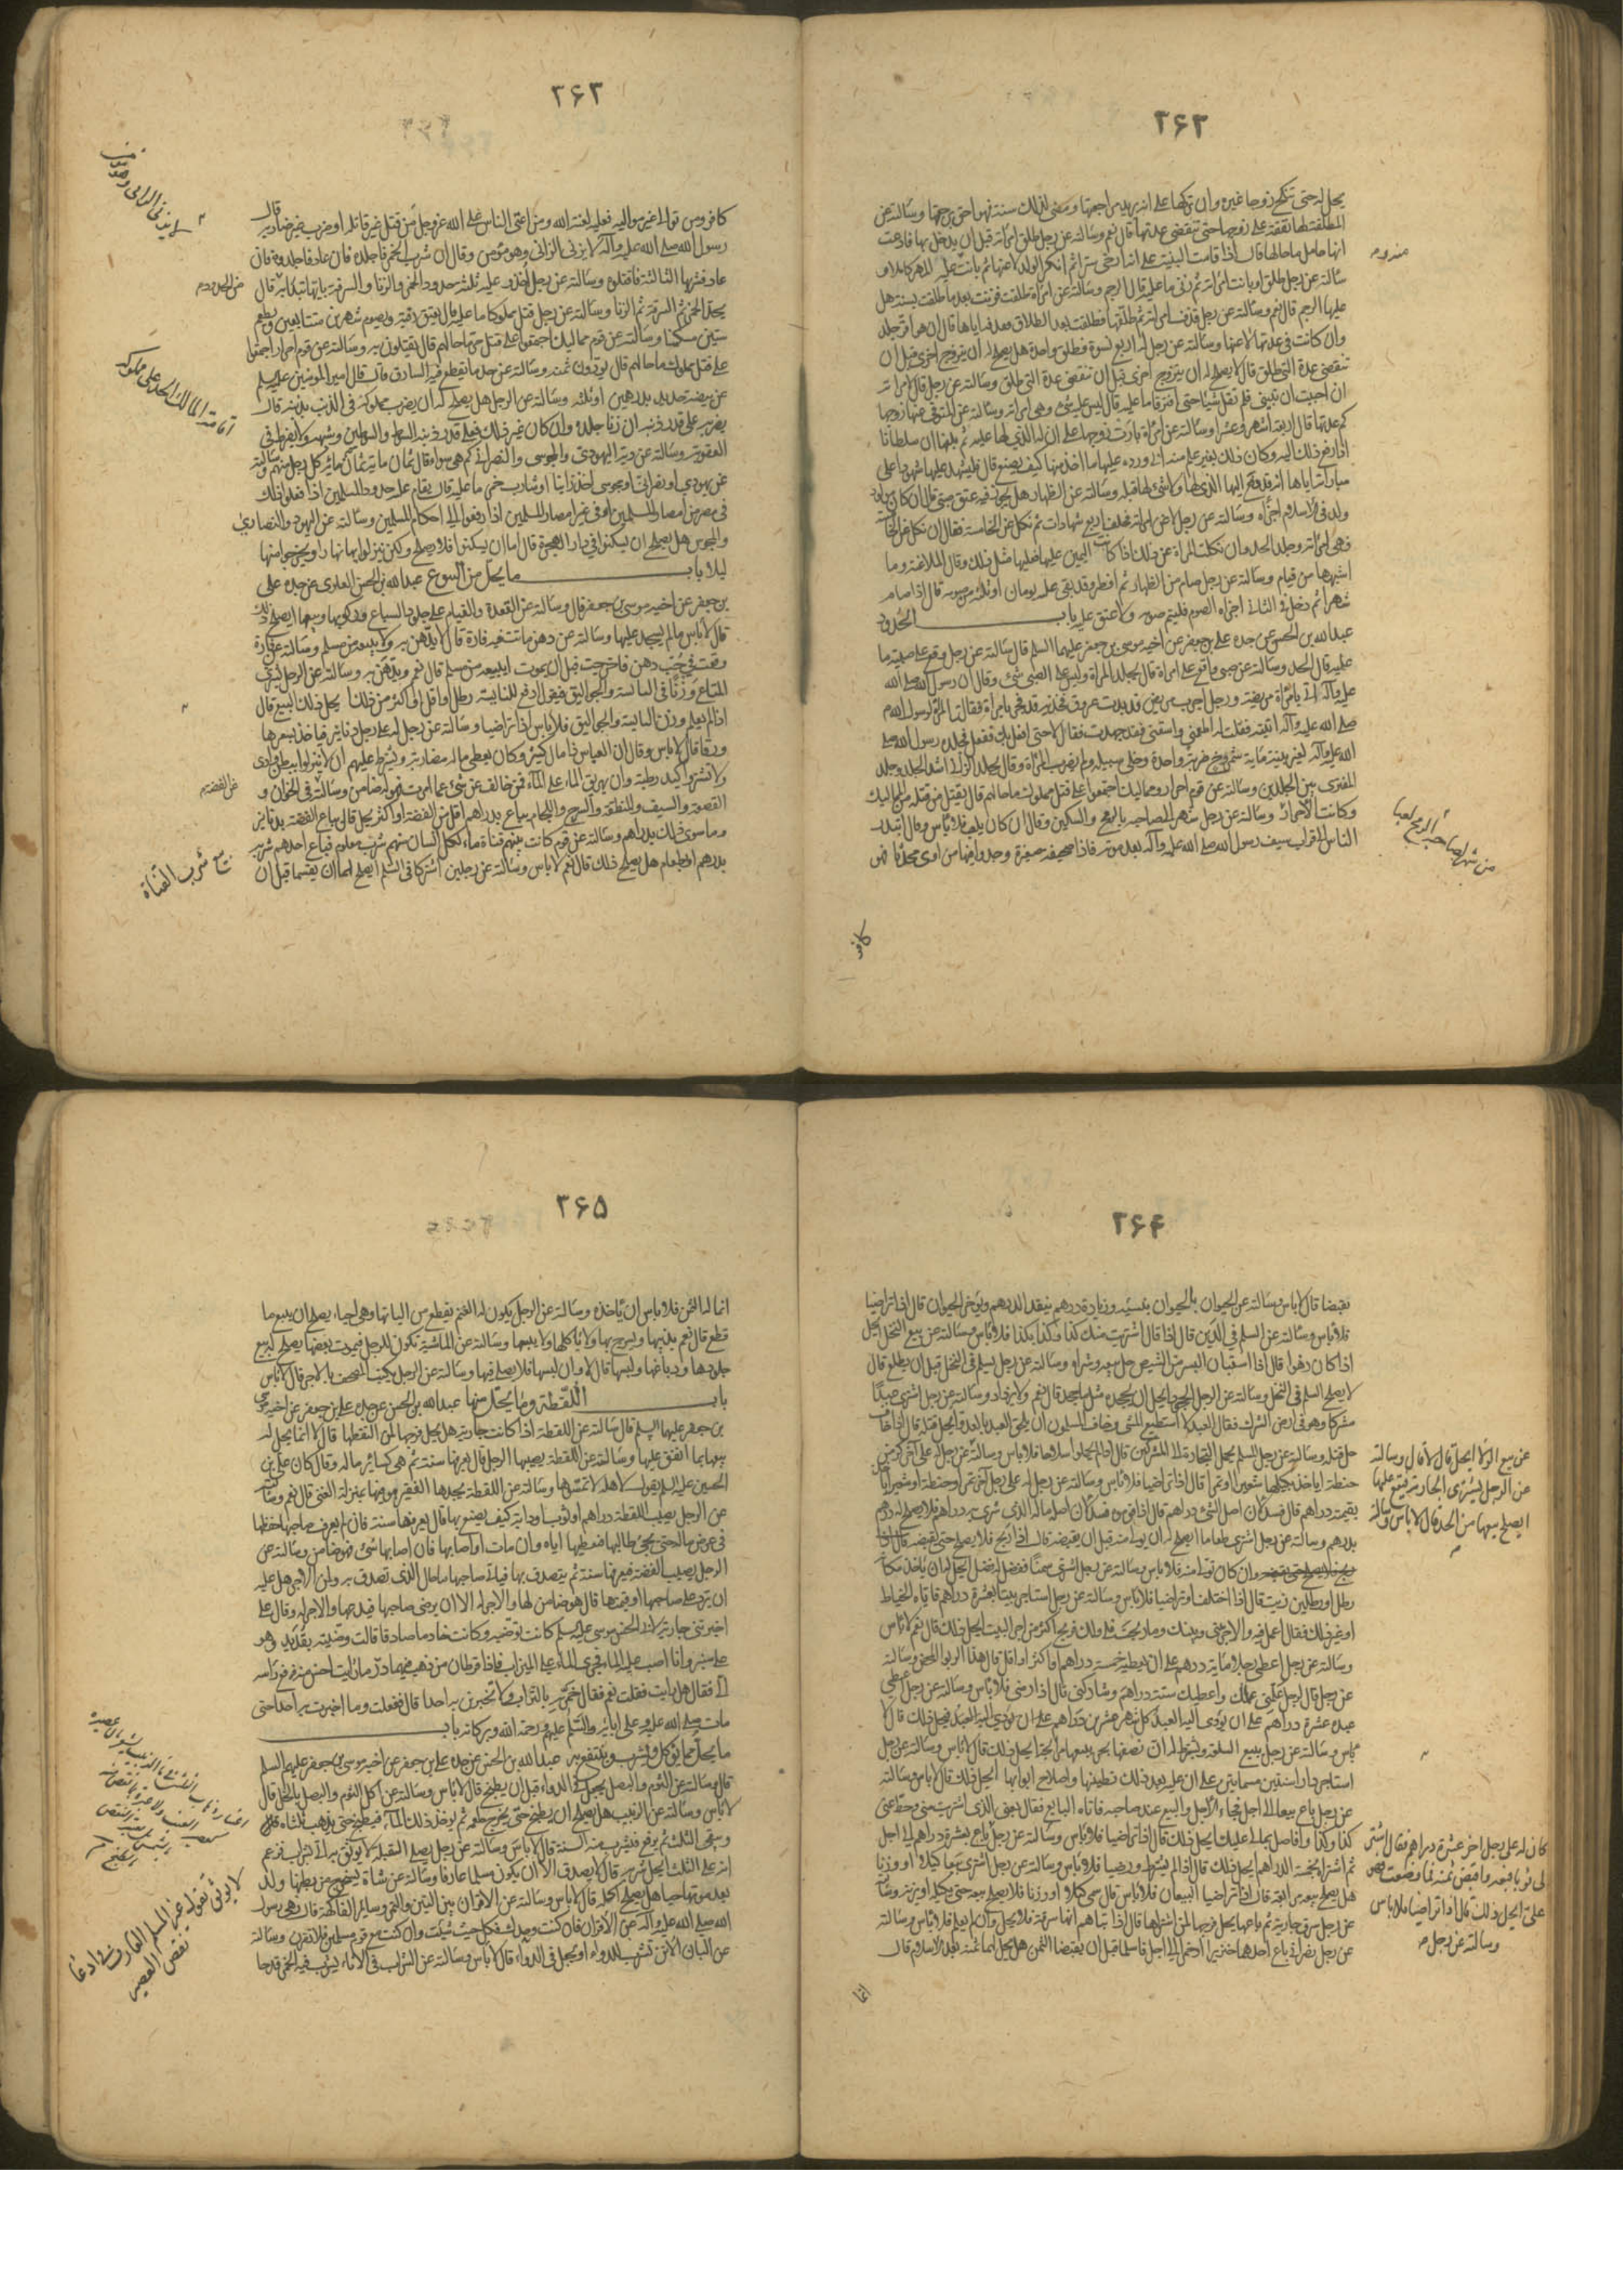 ۲۶۲
يحل له حتى تنكح زوجا غيره وان تركها على انه يريد مراجعتها ومضى لذلك سنة فهو احق برجعتها وسالته عن
المطلقة لها نفقة على زوجها حتى تنقضي عدتها قال نعم وسالته عن رجل طلق امراته قبل ان يدخل بها فادعت
انها حامل ما حالها قال اذا قامت البينة على انه ارخى سترا ثم انكر الولد لاعنها ثم بانت عليه المهر كاملا و
سالته عن رجل طلق او بانت امراته ثم زنى ما عليه قال الرجم وسالته عن امراة طلقت فزنت بعد ما طلقت بسنة هل
عليها الرجم قال نعم وسالته عن رجل قذف امراته ثم طلقها فطلبت بعد الطلاق قذفه اياها قال ان هو اقر جلد
وان كانت في عدتها لاعنها وسالته عن رجل له اربع نسوة فطلق واحدة هل يصلح له ان يتزوج اخرى قبل ان
تنقضي عدة التي طلق قال لا يصلح له ان يتزوج اخرى قبل ان تنقضي عدة التي طلق وسالته عن رجل قال لامراته
ان احببت ان تبيني فلم تقل شيئا حتى افترقا ما عليه قال ليس عليه شئ وهي امراته وسالته عن المتوفى عنها زوجها
كم عدتها قال اربعة اشهر وعشرا وسالته عن امراة بارت زوجها على ان له الذي لها عليه ثم بلغها ان سلطانا
اذا رفع ذلك اليه وكان ذلك بغير علم منه ابى ورده عليها ما اخذ منها كيف يصنع قال فليشهد عليها شهودا على
مباراته اياها انه قد دفع اليها الذي لها ولا شئ لها قبله وسالته عن الظهار هل يجوز فيه عتق صبي قال ان كان مولود
ولد في الاسلام اجزاه وسالته عن رجل لاعن امراته فحلف اربع شهادات ثم نكل عن الخامسة فقال ان نكل عن الخامسة
فهي امراته وجلد الحد وان نكلت المراة عن ذلك اذا كانت اليمين عليها فعليها مثل ذلك وقال الملاعنة وما
اشبهها من قيام وسالته عن رجل صام من الظهار ثم افطر وقد بقي عليه يومان او ثلثة من صومه قال اذا صام
شهرا ثم دخل في الثاني اجزاه الصوم فليتم صومه ولا عتق عليه باب الحدود
عبد الله بن الحسن عن جده علي بن جعفر عن اخيه موسى بن جعفر عليهما السلم قال سالته عن رجل وقع على صبية ما
عليه قال الحد وسالته عن صبي واقع على امراة قال تجلد المراة وليس على الصبي شئ وقال ان رسول الله صلى الله
عليه وآله اتي بامراة مريضة ورجل اجرب مريض قد بدت عروق فخذيه قد فجر بامراة فقالت المراة لرسول الله
صلى الله عليه وآله اتيته فقلت له اطعمني واسقني فقد جهدت فقال لا حتى افعل بك ففعل فجلده رسول الله صلى
الله عليه وآله بغير بينة مائة شمروخ ضربة واحدة وخلى سبيله ولم يضرب المراة وقال يجلد الزاني اشد الجلد وجلد
المفتري بين الجلدين وسالته عن قوم احرار ومماليك اجتمعوا على قتل مملوك ما حالهم قال يقتل من قتله من المماليك
وكانت الاحرار وسالته عن رجل شهر الى صاحبه بالرمح والسكين وقال ان كان يلعب فلا باس وقال ابتدر
الناس الى قراب سيف رسول الله صلى الله عليه وآله بعد موته فاذا صحيفة صغيرة وجدوا فيها من اوى محدثا فهو
كافر
۲۶۳
كافر ومن تولى غير مواليه فعليه لعنة الله ومن اعتى الناس على الله عز وجل من قتل غير قاتله او ضرب غير ضاربه قال
رسول الله صلى الله عليه وآله لا يزني الزاني وهو مؤمن وقال ان شرب الخمر فاجلدوه فان عاد فاجلدوه فان
عاد فشربها الثالثة فاقتلوه وسالته عن رجل اخذ وعليه ثلثة حدود الخمر والزنا والسرقة بايها تبدا به قال
بحد الخمر ثم السرقة ثم الزنا وسالته عن رجل قتل مملوكا ما عليه قال يعتق رقبة ويصوم شهرين متتابعين ويطعم
ستين مسكينا وسالته عن قوم مماليك اجتمعوا على قتل حر ما حالهم قال يقتلون به وسالته عن قوم احرار اجتمعوا
على قتل مملوك ما حالهم قال يؤدون ثمنه وسالته عن حد ما يقطع فيه السارق قال قال امير المؤمنين عليه السلم
عن بيضة حديد بدرهمين او ثلثة وسالته عن الرجل هل يصلح له ان يضرب مملوكه في الذنب يذنبه قال
يضربه على قدر ذنبه ان زنا جلده وان كان غير ذلك فعلى قدر ذنبه السوط والسوطين وشبهه ولا يفرط في
العقوبة وسالته عن دية اليهودي والمجوسي والنصراني كم هي سواء قال ثمان مائة ثمان مائة كل رجل منهم وسالته
عن يهودي او نصراني او مجوسي اخذ زانيا او شارب خمر ما عليه قال يقام عليه حدود المسلمين اذا فعلوا ذلك
في مصر من امصار المسلمين او في غير امصار المسلمين اذا رفعوا الى احكام المسلمين وسالته عن اليهود والنصارى
والمجوس هل يصلح ان يسكنوا في دار الهجرة قال اما ان يسكنوا فلا يصلح ولكن ينزلوا بها نهارا ويخرجوا منها
ليلا باب ما يحل من البيوع عبد الله بن الحسن العلوي عن جده علي
بن جعفر عن اخيه موسى بن جعفر قال وسالته عن القعدة والقيام على جلود السباع وركوبها وبيعها ايصلح ذلك
قال لا باس ما لم يسجد عليها وسالته عن دهن ماتت فيه فارة قال لا يدهن به ولا يبيعه من مسلم وسالته عن فارة
وقعت في حب دهن فاخرجت قبل ان يموت ايبيعه من مسلم قال نعم ويدهن به وسالته عن الرجل يشتري
المتاع وزنا في الناسية والجواليق فيقول ادفع للناسية رطل او اقل او اكثر من ذلك ايحل ذلك البيع قال
اذا لم يعلم وزن الناسية والجواليق فلا باس اذا تراضيا وسالته عن رجل له على رجل دنانير فياخذ بسعرها
ورقا قال لا باس وقال ان العباس ذا مال كثير وكان يعطي ماله مضاربة ويشترط عليهم ان لا ينزلوا بطن وادي
ولا تشتروا كبد رطبة وان يهريق الماء على الماء فمن خالف عن شئ مما امرت فهو له ضامن وسالته في الخوان و
القصعة والسيف والمنطقة والسرج واللجام يباع بدراهم اقل من الفضة او اكثر يحل قال يباع الفضة بدنانير
وما سوى ذلك بدراهم وسالته عن قوم كانت بينهم قناة ماء لكل انسان منهم شرب معلوم فباع احدهم شربه
بدرهم او طعام هل يصلح ذلك قال نعم لا باس وسالته عن رجلين اشتركا في السلم ايصلح لهما ان يقتسما قبل ان
اقامة المالك الحد على مملوكه
بيع شرب القناة
۲۶۴
يقبضا قال لا باس وسالته عن الحيوان بالحيوان بنسية وزيادة درهم ينقد الدرهم ويؤخر الحيوان قال اذا تراضيا
فلا باس وسالته عن السلم في الدين قال اذا قال اشتريت منك كذا وكذا بكذا وكذا فلا باس وسالته عن بيع النخل ايحل
اذا كان زهوا قال اذا استبان البسر من الشيص حل بيعه وشراؤه وسالته عن رجل يسلم في النخل قبل ان يطلع قال
لا يصلح السلم في النخل وسالته عن الرجل الجحود ايحل ان يجحده مثل ما جحد قال نعم ولا يزداد وسالته عن رجل اشترى عبدا
مشركا وهو في ارض الشرك فقال العبد لا استطيع المشي وخاف المسلمون ان يلحق العبد بالعدو ايحل قتله قال اذا خاف
حل قتله وسالته عن رجل مسلم يحمل التجارة الى المشركين قال اذا لم يحملوا سلاحا فلا باس وسالته عن رجل له على آخر كر من
حنطة اياخذ بكيلها شعيرا او تمرا قال اذا تراضيا فلا باس وسالته عن رجل له على رجل آخر تمر او حنطة او شعير اياخذ
بقيمته دراهم قال فسد لان اصل الشئ دراهم قال اذا قومه فسد لان اصل ماله الذي يشتري به دراهم فلا يصلح له درهم
بدرهم وسالته عن رجل اشترى طعاما ايصلح له ان يوليه منه قبل ان يقبضه قال اذا ربح فلا يصلح حتى يقبضه
وان كان تولية منه فلا باس وسالته عن رجل اشترى سمنا ففضل له فضل ايحل له ان ياخذ مكانه
رطل او رطلين زيت قال اذا اختلفا وتراضيا فلا باس وسالته عن رجل استاجر بيتا بعشرة دراهم فاتاه الخياط
او غير ذلك فقال اعمل فيه والاجر بيني وبينك وما ربحت فلي ولك فربح اكثر من اجر البيت ايحل ذلك قال نعم لا باس
وسالته عن رجل اعطى رجلا مائة درهم على ان يعطيه خمسة دراهم او اكثر او اقل قال هذا الربوا المحض وسالته
عن رجل قال لرجل علمني عملك واعطيك ستة دراهم وشاركني قال اذا رضي فلا باس وسالته عن رجل اعطى
عبده عشرة دراهم على ان يؤدي اليه العبد كل شهر عشرة دراهم على ان يؤدي اليه العبد فيحل ذلك قال لا
باس وسالته عن رجل يبيع السلعة ويشترط له ان نصفها ثم يبيعها مرابحة ايحل ذلك قال لا باس وسالته عن رجل
استاجر دار سنتين مسماتين على ان عليه بعد ذلك تطيينها واصلاح ابوابها ايحل ذلك قال لا باس وسالته
عن رجل باع بيعا الى اجل فجاء الاجل والبيع عند صاحبه فاتاه البايع فقال بعني الذي اشتريت مني وحط عني
كذا وكذا وافاصل بمالي عليك ايحل ذلك قال اذا تراضيا فلا باس وسالته عن رجل باع بعشرة دراهم الى اجل
ثم اشتراه بخمسة دراهم ايحل ذلك قال اذا لم يشترط ورضيا فلا باس وسالته عن رجل اشترى بيعا كيلا او وزنا
هل يصلح بيعه مرابحة قال اذا تراضيا البيعان فلا باس قال سمى كيلا او وزنا فلا يصلح بيعه حتى يكيله او يزنه وسالته
عن رجل سرق جارية ثم باعها يحل فرجها لمن اشتراها قال اذا انباهم انها سرقة فلا يحل وان لم يعلم فلا باس وسالته
عن رجلين نصرانيين باع احدهما خنزيرا او خمرا الى اجل فاسلما قبل ان يقبضا الثمن هل يحل لهما ثمنه بعد الاسلام قال
عن بيع الولاء ايحل قال لا قال وسالته
عن الرجل يشتري الجارية فيقع عليها
ايصلح بيعها من الغد قال لا باس وسالته
كان له على رجل آخر عشرة دراهم فقال اشتر
لي ثوبا فبعه واقبض ثمنه فما وضعت فهو
علي ايحل ذلك قال اذا تراضيا فلا باس
وسالته عن رجل
انما
۲۶۵
انما له الثمن فلا باس ان ياخذه وسالته عن الرجل يكون له الغنم يقطع من الياتها وهي احياء ايصلح ان يبيع ما
قطع قال نعم يذيبها ويسرج بها ولا ياكلها ولا يبيعها وسالته عن الماشية تكون للرجل فيموت بعضها يصلح له بيع
جلودها ودباغها ولبسها قال لا وان لبسها فلا يصلي فيها وسالته عن الرجل يكتب المصحف بالاجر قال لا باس
باب اللقطة وما يحل منها عبد الله بن الحسن عن جده علي بن جعفر عن اخيه موسى
بن جعفر عليهما السلم قال سالته عن اللقطة اذا كانت جارية هل يحل فرجها لمن التقطها قال لا انما يحل له
بيعها بما انفق عليها وسالته عن اللقطة يصيبها الرجل قال يعرفها سنة ثم هي كسائر ماله وقال كان علي بن
الحسين عليه السلم يقول لاهله لا تمسوها وسالته عن اللقطة يجدها الفقير هو فيها بمنزلة الغني قال نعم وسالته
عن الرجل يصيب اللقطة دراهم او ثوب او دابة كيف يصنع بها قال يعرفها سنة فان لم يعرف صاحبها حفظها
في عرض ماله حتى يجئ طالبها فيعطيها اياه وان مات اوصى بها فان اصابها شئ فهو ضامن وسالته عن
الرجل يصيب الفضة فيعرفها سنة ثم يتصدق بها فياتي صاحبها ما حال الذي تصدق به ولمن الاجر هل عليه
ان يرد على صاحبها او قيمتها قال هو ضامن لها والاجر له الا ان يرضى صاحبها فيدعها والاجر له وقال علي
اخبرتني جارية لابي الحسن موسى عليه السلم كانت توضيه وكانت خادما صادقا قالت وضيته بقديد وهو
على منبر وانا اصب عليه الماء فجرى الماء على الميزاب فاذا قرطان من ذهب فيهما در ما رايت احسن منه فرفع راسه
الي فقال هل رايت فقلت نعم فقال خمريه بالتراب ولا تخبرين به احدا قال ففعلت وما اخبرت به احدا حتى
مات صلى الله عليه وعلى آبائه والسلم عليهم ورحمة الله وبركاته باب
ما يحل مما يؤكل ويشرب وينتفع به عبد الله بن الحسن عن جده علي بن جعفر عن اخيه موسى بن جعفر عليهم السلم
قال وسالته عن الثوم والبصل يجعل في الدواء قبل ان يطبخ قال لا باس وسالته عن اكل الثوم والبصل بالخل قال
لا باس وسالته عن الزبيب هل يصلح ان يطبخ حتى يخرج طعمه ثم يؤخذ ذلك الماء فيطبخ حتى يذهب ثلثاه
ويبقى الثلث ثم يرفع فيشرب منه السنة قال لا باس وسالته عن رجل يصلي القبلة لا يوثق به اتى بشراب فزعم
انه على الثلث ايحل شربه قال لا يصدق الا ان يكون مسلما عارفا وسالته عن شاة يستخرج من بطنها ولد
بعد موتها حيا هل يصلح اكله قال لا باس وسالته عن الاقران بين التين والتمر وسائر الفاكهة قال نهى رسول
الله صلى الله عليه وآله عن الاقران فان كنت وحدك فكل حيث شئت وان كنت مع قوم مسلمين فلا تقرن وسالته
عن البان الاتن تشرب للدواء او يجعل في الدواء قال لا باس وسالته عن الشراب في الاناء يشرب فيه الخمر قدحا